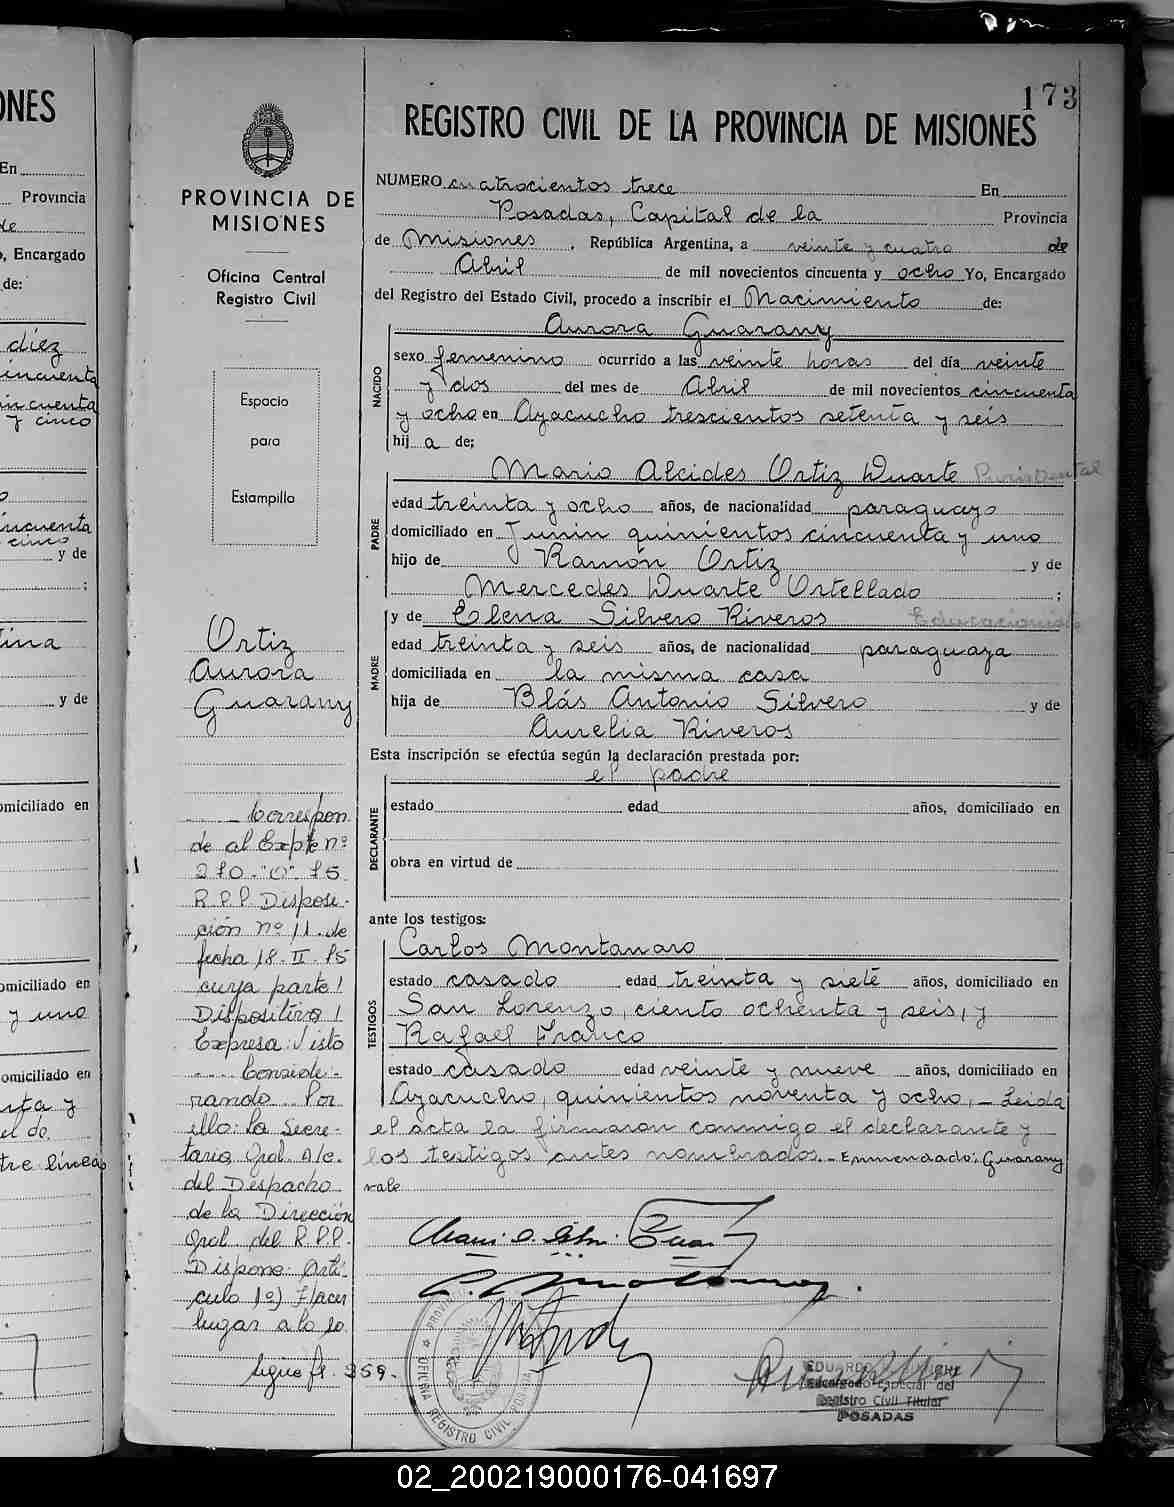 ONES
En
Provincia
de
o, Encargado
de:
diez
cincuenta
cincuenta
y cinco
cincuenta
cinco
y de
;
tina
y de
omiciliado en
omiciliado en
y uno
omiciliado en
y
el de
tre líneas
PROVINCIA DE
MISIONES
Oficina Central
Registro Civil
Espacio
para
Estampilla
Ortiz
Aurora
Guarany
Correspon
de al Expte nº
210 "O" 85
R.P.P Disposi-
ción nº 11 de
fecha 18-II-85
cuya parte
Dispositiva
Expresa: Visto
Conside-
rando Por
ello: la Secre-
taria Gral. A/c.
del Despacho
de la Dirección
Gral. del R.P.P.
Dispone: Artí-
culo 1º) Hacer
lugar a lo so
sigue fº. 359.
173
REGISTRO CIVIL DE LA PROVINCIA DE MISIONES
NUMERO cuatrocientos trece En
Posadas, Capital de la Provincia
de Misiones, República Argentina, a veinte y cuatro de
Abril de mil novecientos cincuenta y ocho Yo, Encargado
del Registro del Estado Civil, procedo a inscribir el Nacimiento de:
NACIDO
Aurora Guarany
sexo femenino ocurrido a las veinte horas del día veinte
y dos del mes de Abril de mil novecientos cincuenta
y ocho en Ayacucho trescientos setenta y seis
hij a de;
PADRE
Mario Alcides Ortiz Duarte
edad treinta y ocho años, de nacionalidad paraguayo
domiciliado en Junin quinientos cincuenta y uno
hijo de Ramón Ortiz y de
Mercedes Duarte Ortellado ;
MADRE
y de Elena Silvero Riveros Educacionista
edad treinta y seis años, de nacionalidad paraguaya
domiciliada en la misma casa
hija de Blás Antonio Silvero y de
Aurelia Riveros
Esta inscripción se efectúa según la declaración prestada por:
el padre
DECLARANTE
estado edad años, domiciliado en
obra en virtud de
ante los testigos:
TESTIGOS
Carlos Montanaro
estado casado edad treinta y siete años, domiciliado en
San Lorenzo, ciento ochenta y seis, y
Rafael Franco
estado casado edad veinte y nueve años, domiciliado en
Ayacucho, quinientos noventa y ocho, - Leida
el acta la firmaron conmigo el declarante y
los testigos antes nombrados. - Enmendado: Guarany
vale
OFICINA REGISTRO CIVIL POSADAS
EDUARDO
Encargado Especial del
Registro Civil Titular
POSADAS
02_200219000176-041697